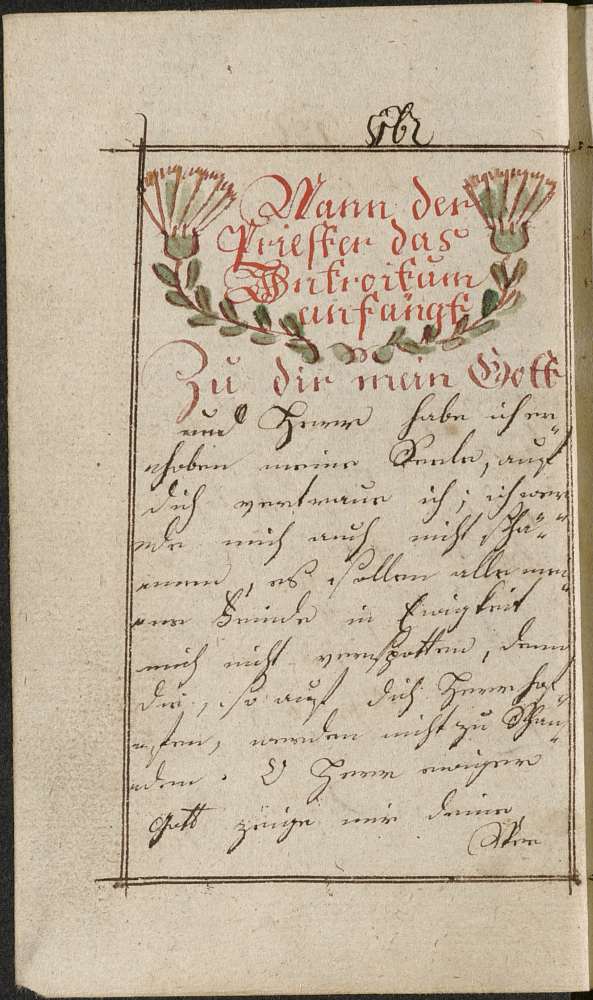 162
Wann der
Priester das
Introitum
anfängt
Zu dir mein Gott
und Herr habe ich er„
„hoben meine Seele, auf
dich vertraue ich; ich wer„
„de mich auch nicht schä„
„men, es sollen alle mei„
„ne Feinde in Ewigkeit
mich nicht verspotten, denn
die, so auf dich Herr hof„
„fen, werden nicht zu Schan„
„den. O Herr ewiger
Gott zeige mir deine